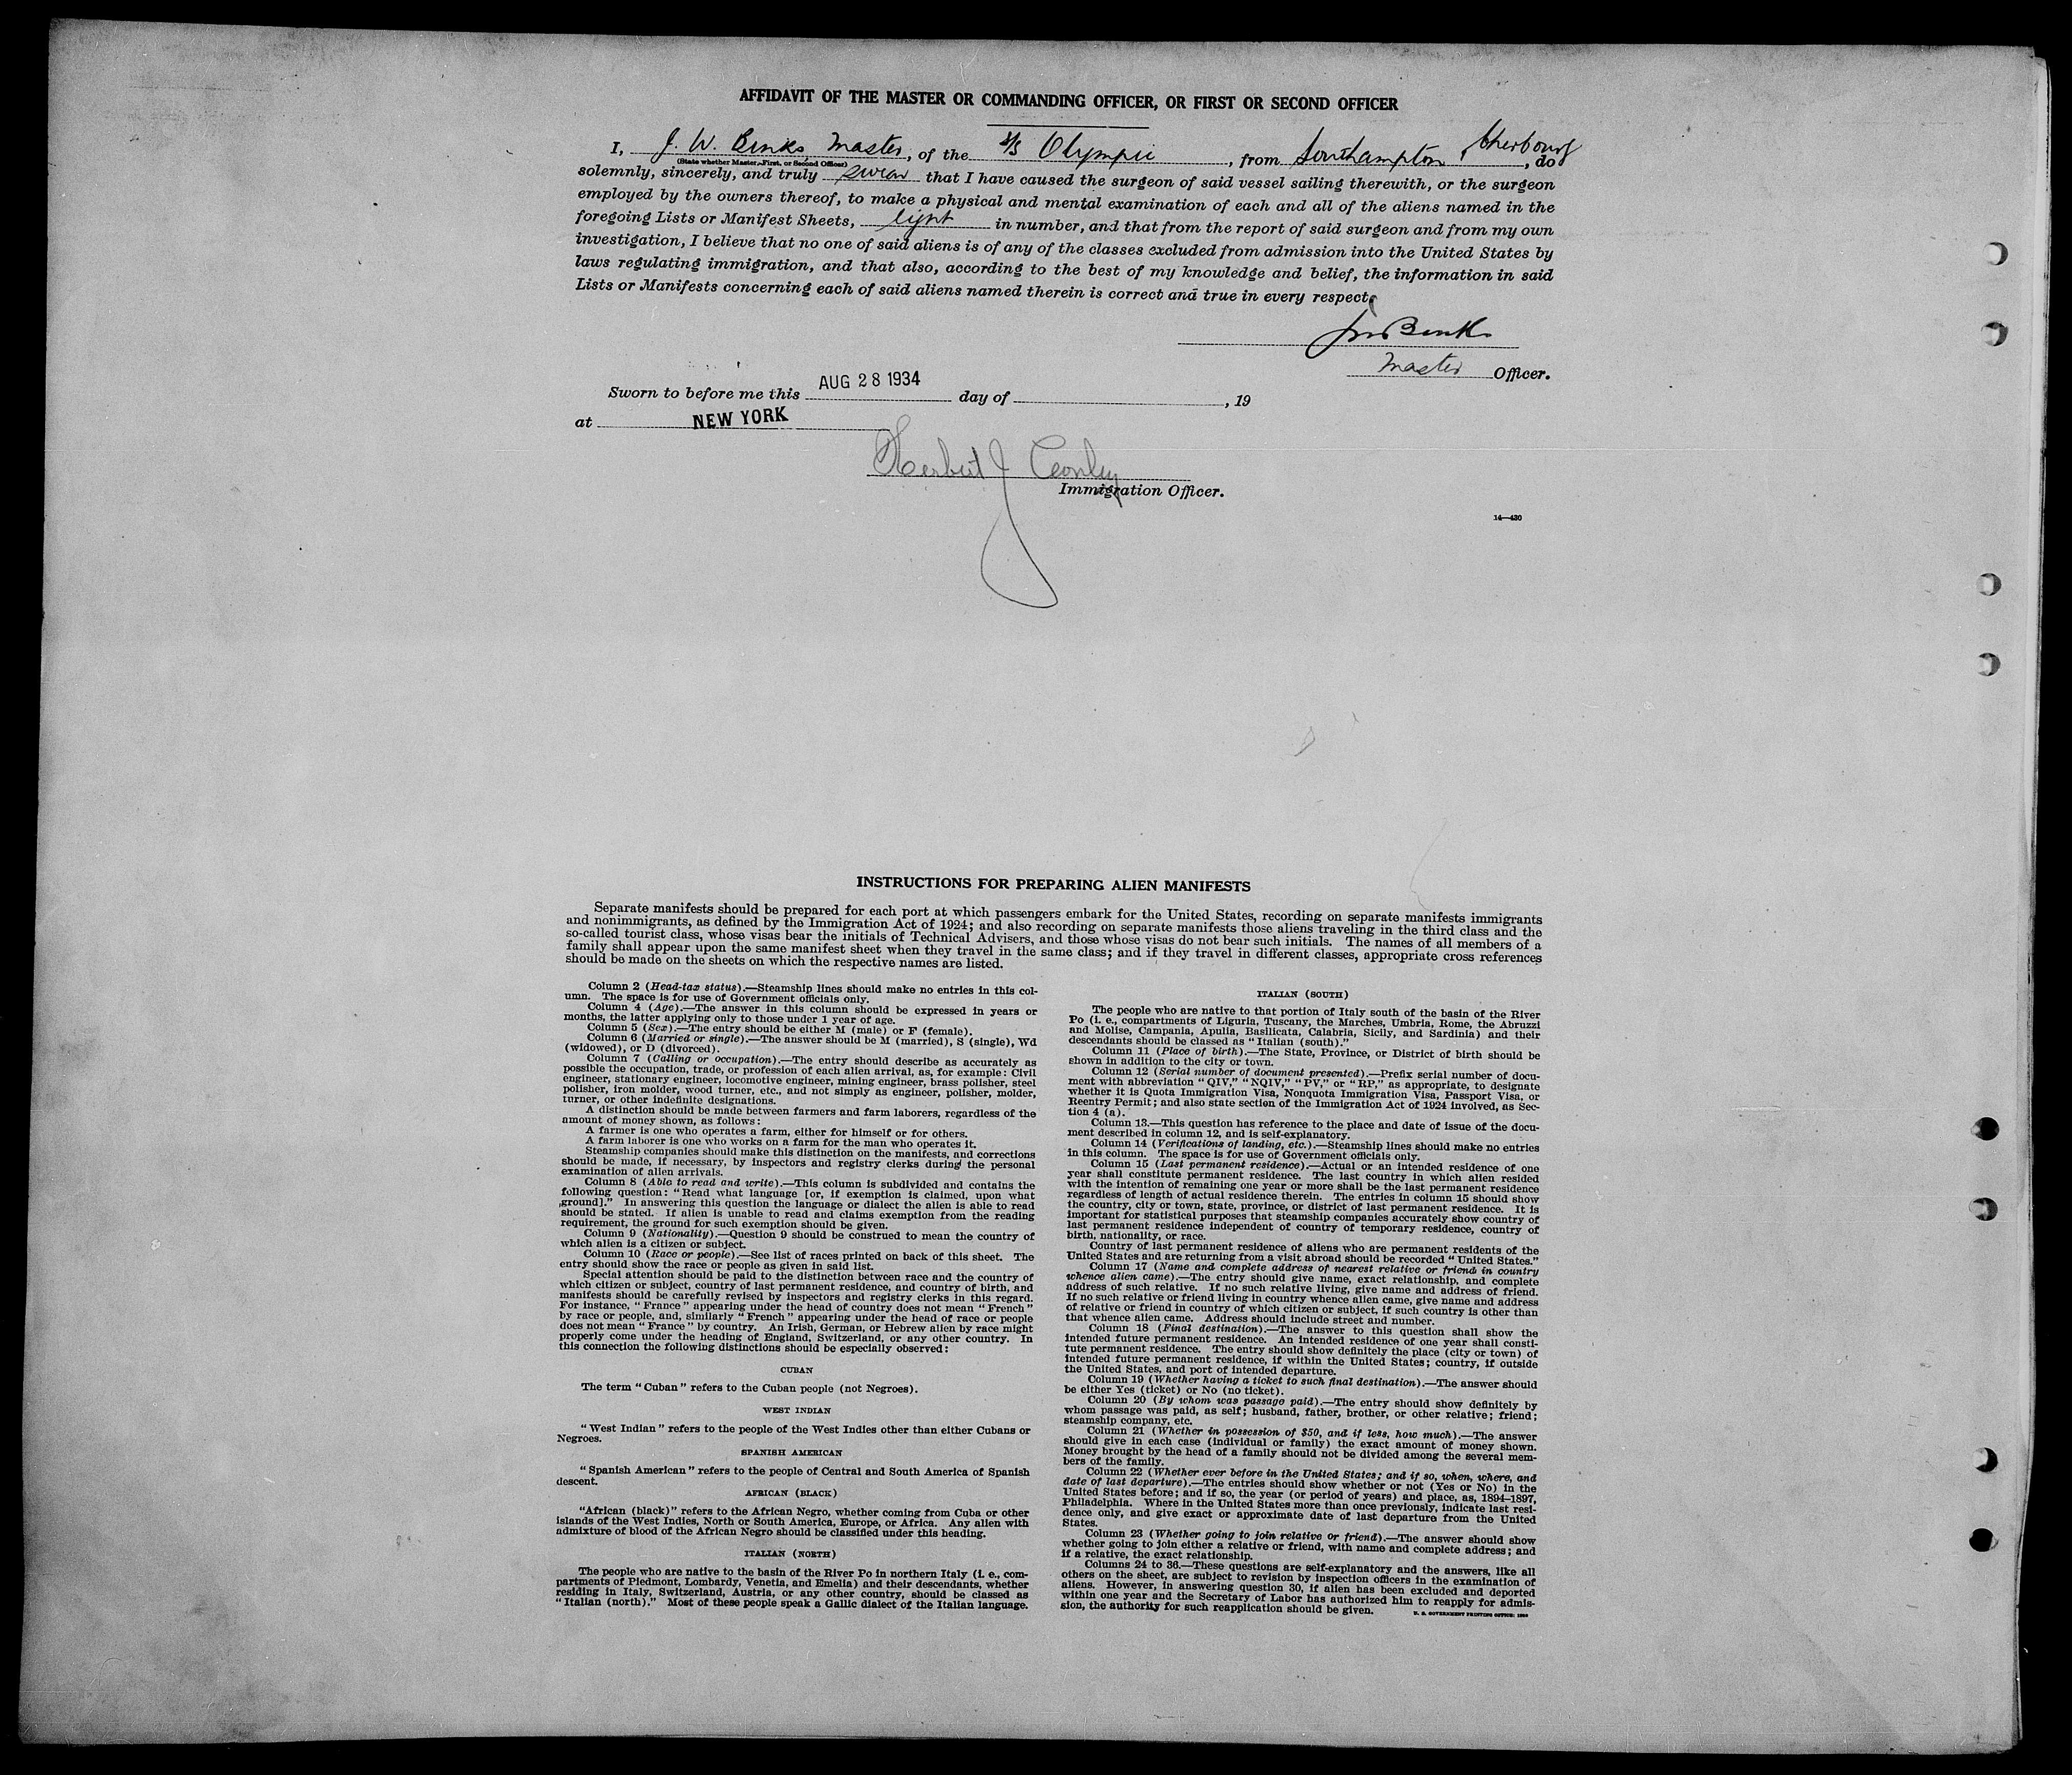 AFFIDAVIT OF THE MASTER OR COMMANDING OFFICER, OR FIRST OR SECOND OFFICER
I, J. W. Binks, Master, of the S/S Olympic, from Southampton, Cherbourg, do
(State whether Master, First, or Second Officer)
solemnly, sincerely, and truly swear that I have caused the surgeon of said vessel sailing therewith, or the surgeon
employed by the owners thereof, to make a physical and mental examination of each and all of the aliens named in the
foregoing Lists or Manifest Sheets, eight in number, and that from the report of said surgeon and from my own
investigation, I believe that no one of said aliens is of any of the classes excluded from admission into the United States by
laws regulating immigration, and that also, according to the best of my knowledge and belief, the information in said
Lists or Manifests concerning each of said aliens named therein is correct and true in every respect.
JW Binks
Master Officer.
Sworn to before me this AUG 28 1934 day of , 19
at NEW YORK
Herbert J
Immigration Officer.
14—430
INSTRUCTIONS FOR PREPARING ALIEN MANIFESTS
Separate manifests should be prepared for each port at which passengers embark for the United States, recording on separate manifests immigrants
and nonimmigrants, as defined by the Immigration Act of 1924; and also recording on separate manifests those aliens traveling in the third class and the
so-called tourist class, whose visas bear the initials of Technical Advisers, and those whose visas do not bear such initials. The names of all members of a
family shall appear upon the same manifest sheet when they travel in the same class; and if they travel in different classes, appropriate cross references
should be made on the sheets on which the respective names are listed.
Column 2 (Head-tax status).—Steamship lines should make no entries in this col-
umn. The space is for use of Government officials only.
Column 4 (Age).—The answer in this column should be expressed in years or
months, the latter applying only to those under 1 year of age.
Column 5 (Sex).—The entry should be either M (male) or F (female).
Column 6 (Married or single).—The answer should be M (married), S (single), Wd
(widowed), or D (divorced).
Column 7 (Calling or occupation).—The entry should describe as accurately as
possible the occupation, trade, or profession of each alien arrival, as, for example: Civil
engineer, stationary engineer, locomotive engineer, mining engineer, brass polisher, steel
polisher, iron molder, wood turner, etc., and not simply as engineer, polisher, molder,
turner, or other indefinite designations.
A distinction should be made between farmers and farm laborers, regardless of the
amount of money shown, as follows:
A farmer is one who operates a farm, either for himself or for others.
A farm laborer is one who works on a farm for the man who operates it.
Steamship companies should make this distinction on the manifests, and corrections
should be made, if necessary, by inspectors and registry clerks during the personal
examination of alien arrivals.
Column 8 (Able to read and write).—This column is subdivided and contains the
following question: "Read what language [or, if exemption is claimed, upon what
ground]." In answering this question the language or dialect the alien is able to read
should be stated. If alien is unable to read and claims exemption from the reading
requirement, the ground for such exemption should be given.
Column 9 (Nationality).—Question 9 should be construed to mean the country of
which alien is a citizen or subject.
Column 10 (Race or people).—See list of races printed on back of this sheet. The
entry should show the race or people as given in said list.
Special attention should be paid to the distinction between race and the country of
which citizen or subject, country of last permanent residence, and country of birth, and
manifests should be carefully revised by inspectors and registry clerks in this regard.
For instance, "France" appearing under the head of country does not mean "French"
by race or people, and, similarly "French" appearing under the head of race or people
does not mean "France" by country. An Irish, German, or Hebrew alien by race might
properly come under the heading of England, Switzerland, or any other country. In
this connection the following distinctions should be especially observed:
CUBAN
The term "Cuban" refers to the Cuban people (not Negroes).
WEST INDIAN
"West Indian" refers to the people of the West Indies other than either Cubans or
Negroes.
SPANISH AMERICAN
"Spanish American" refers to the people of Central and South America of Spanish
descent.
AFRICAN (BLACK)
"African (black)" refers to the African Negro, whether coming from Cuba or other
islands of the West Indies, North or South America, Europe, or Africa. Any alien with
admixture of blood of the African Negro should be classified under this heading.
ITALIAN (NORTH)
The people who are native to the basin of the River Po in northern Italy (i. e., com-
partments of Piedmont, Lombardy, Venetia, and Emelia) and their descendants, whether
residing in Italy, Switzerland, Austria, or any other country, should be classed as
"Italian (north)." Most of these people speak a Gallic dialect of the Italian language.
ITALIAN (SOUTH)
The people who are native to that portion of Italy south of the basin of the River
Po (i. e., compartments of Liguria, Tuscany, the Marches, Umbria, Rome, the Abruzzi
and Molise, Campania, Apulia, Basilicata, Calabria, Sicily, and Sardinia) and their
descendants should be classed as "Italian (south)."
Column 11 (Place of birth).—The State, Province, or District of birth should be
shown in addition to the city or town.
Column 12 (Serial number of document presented).—Prefix serial number of docu-
ment with abbreviation "QIV," "NQIV," "PV," or "RP," as appropriate, to designate
whether it is Quota Immigration Visa, Nonquota Immigration Visa, Passport Visa, or
Reentry Permit; and also state section of the Immigration Act of 1924 involved, as Sec-
tion 4 (a).
Column 13.—This question has reference to the place and date of issue of the docu-
ment described in column 12, and is self-explanatory.
Column 14 (Verifications of landing, etc.).—Steamship lines should make no entries
in this column. The space is for use of Government officials only.
Column 15 (Last permanent residence).—Actual or an intended residence of one
year shall constitute permanent residence. The last country in which alien resided
with the intention of remaining one year or more shall be the last permanent residence
regardless of length of actual residence therein. The entries in column 15 should show
the country, city or town, state, province, or district of last permanent residence. It is
important for statistical purposes that steamship companies accurately show country of
last permanent residence independent of country of temporary residence, country of
birth, nationality, or race.
Country of last permanent residence of aliens who are permanent residents of the
United States and are returning from a visit abroad should be recorded "United States."
Column 17 (Name and complete address of nearest relative or friend in country
whence alien came).—The entry should give name, exact relationship, and complete
address of such relative. If no such relative living, give name and address of friend.
If no such relative or friend living in country whence alien came, give name and address
of relative or friend in country of which citizen or subject, if such country is other than
that whence alien came. Address should include street and number.
Column 18 (Final destination).—The answer to this question shall show the
intended future permanent residence. An intended residence of one year shall consti-
tute permanent residence. The entry should show definitely the place (city or town) of
intended future permanent residence, if within the United States; country, if outside
the United States, and port of intended departure.
Column 19 (Whether having a ticket to such final destination).—The answer should
be either Yes (ticket) or No (no ticket).
Column 20 (By whom was passage paid).—The entry should show definitely by
whom passage was paid, as self; husband, father, brother, or other relative; friend;
steamship company, etc.
Column 21 (Whether in possession of $50, and if less, how much).—The answer
should give in each case (individual or family) the exact amount of money shown.
Money brought by the head of a family should not be divided among the several mem-
bers of the family.
Column 22 (Whether ever before in the United States; and if so, when, where, and
date of last departure).—The entries should show whether or not (Yes or No) in the
United States before; and if so, the year (or period of years) and place, as, 1894–1897,
Philadelphia. Where in the United States more than once previously, indicate last resi-
dence only, and give exact or approximate date of last departure from the United
States.
Column 23 (Whether going to join relative or friend).—The answer should show
whether going to join either a relative or friend, with name and complete address; and
if a relative, the exact relationship.
Columns 24 to 36.—These questions are self-explanatory and the answers, like all
others on the sheet, are subject to revision by inspection officers in the examination of
aliens. However, in answering question 30, if alien has been excluded and deported
within one year and the Secretary of Labor has authorized him to reapply for admis-
sion, the authority for such reapplication should be given.
U. S. GOVERNMENT PRINTING OFFICE: